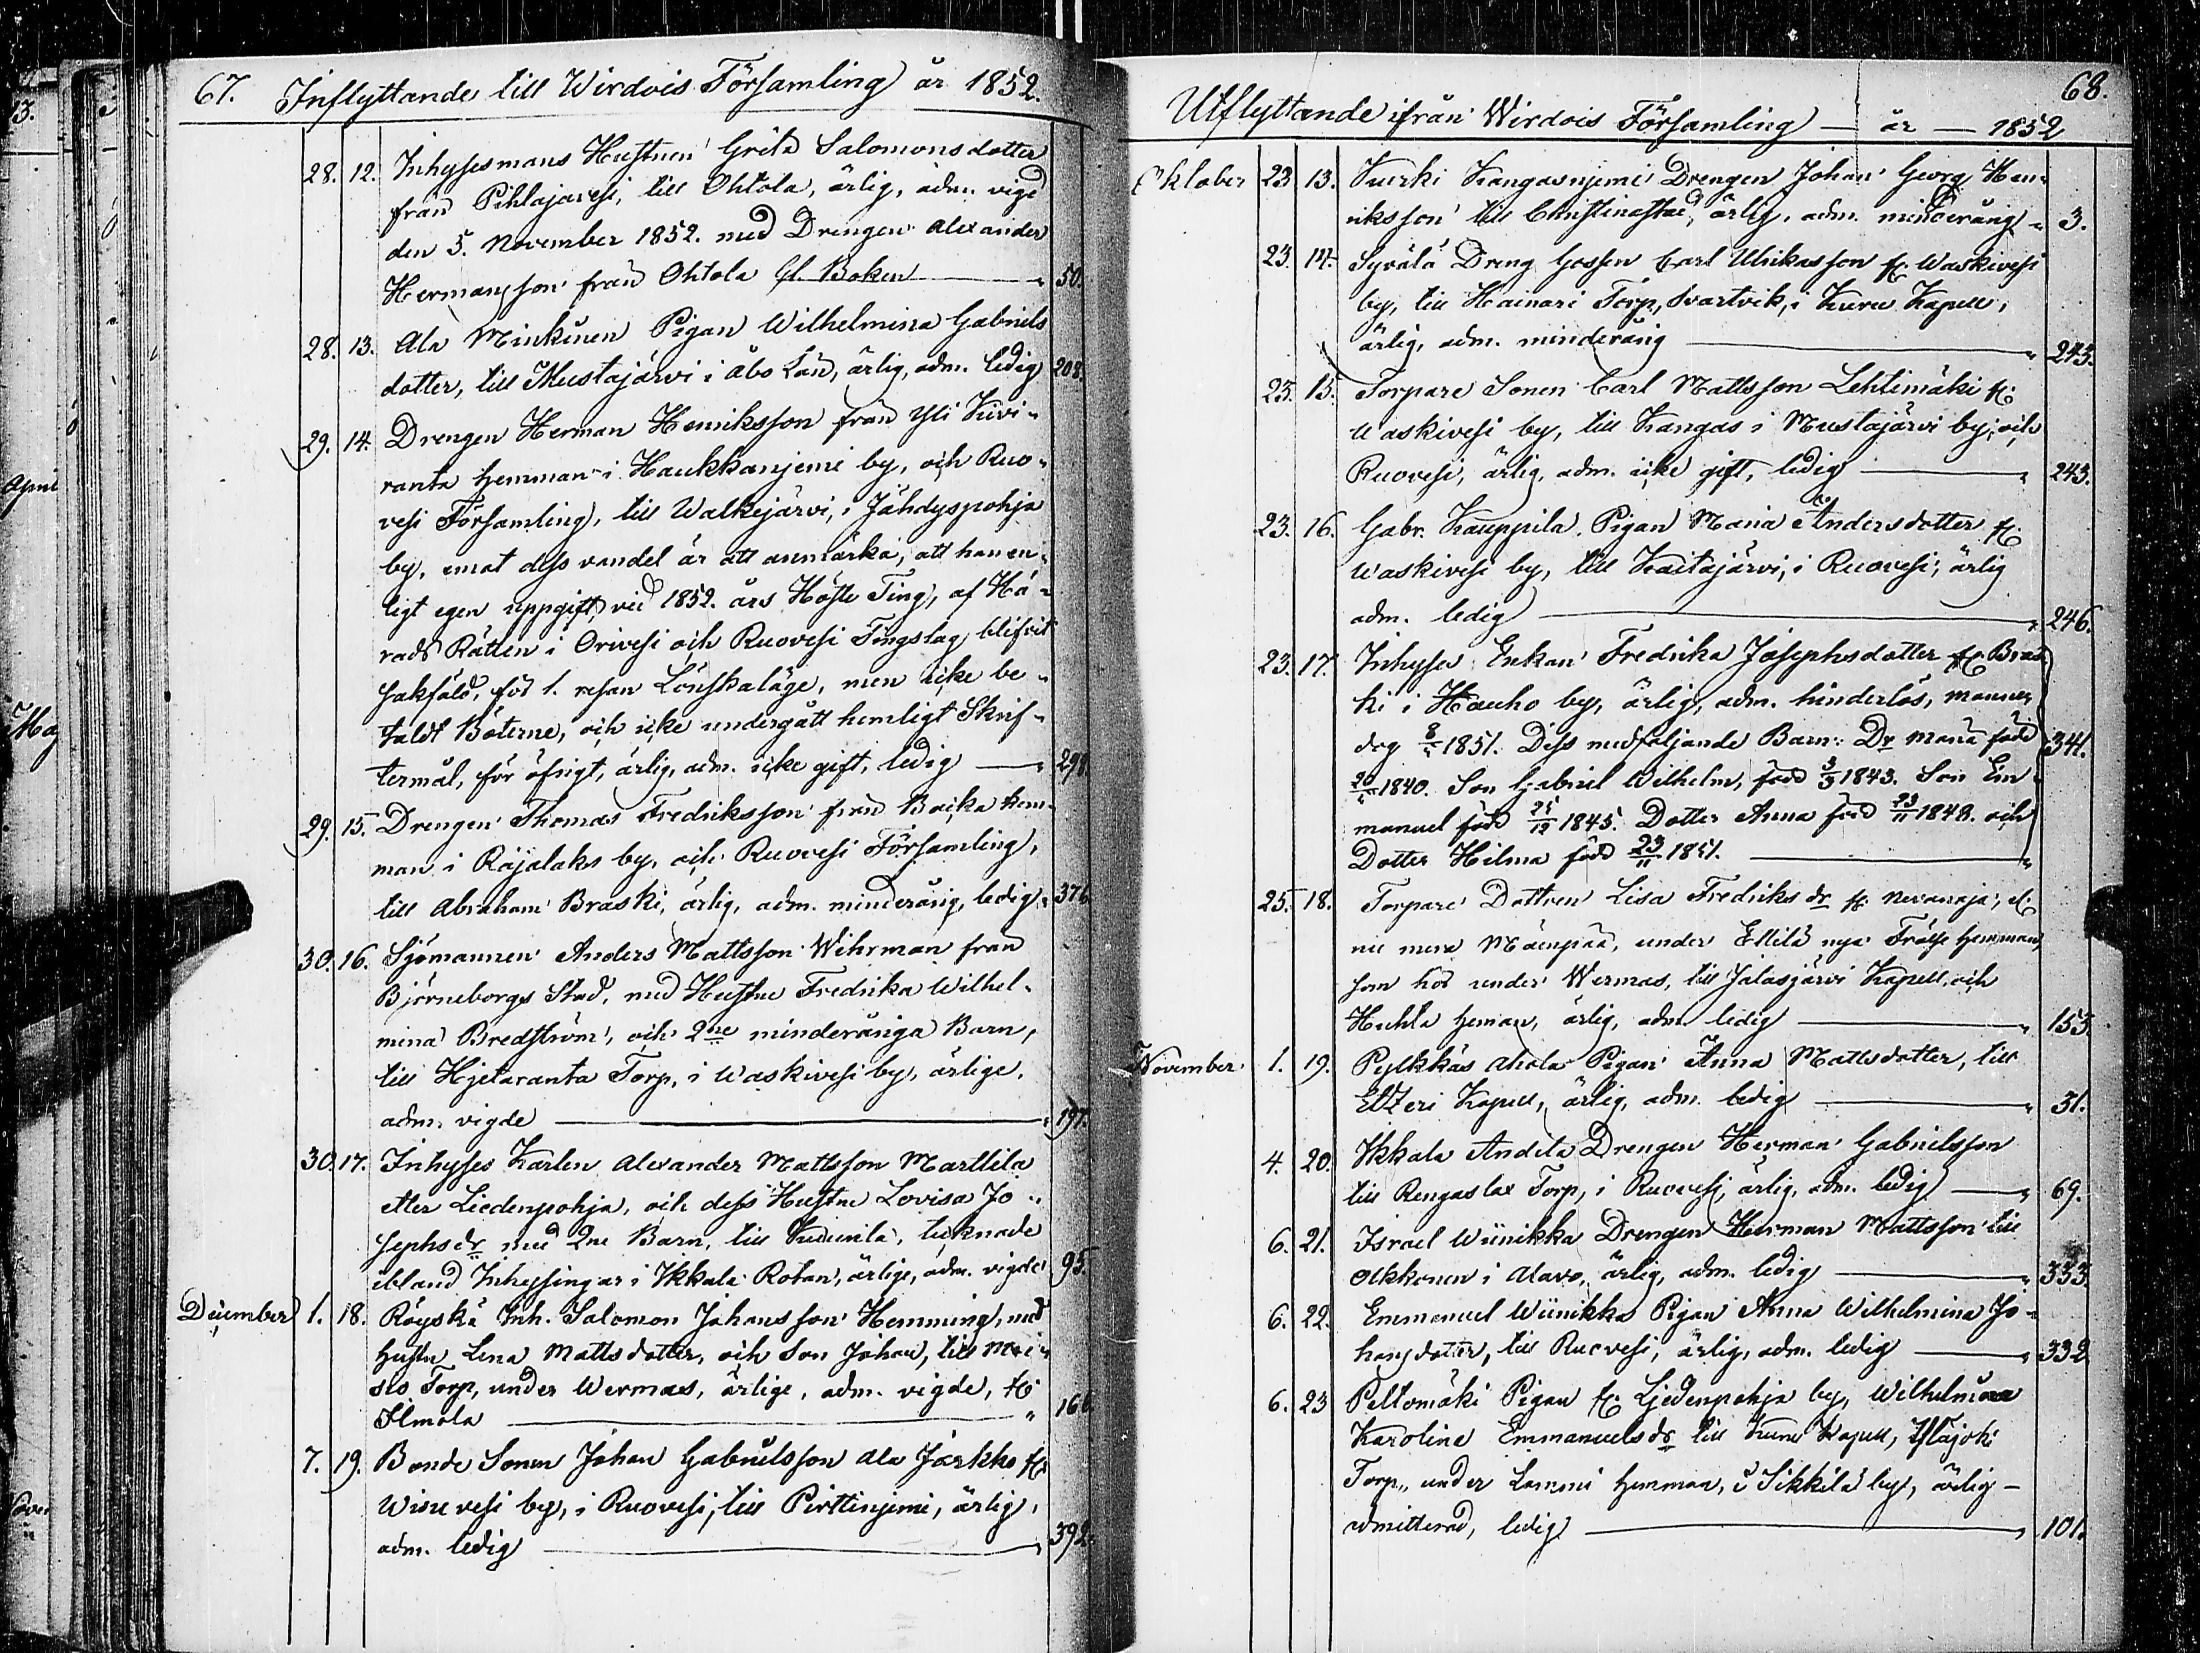 67. Inflyttande till Wirdois Församling år 1852.
28. 12. Inhysesmans Hustrun Greta Salomonsdotter
från Pihlajavesi, till Ohtola, ärlig, adm. vigd
den 5. November 1852. med Drengen Alexander
Hermansson från Ohtola Gl. Boken 50.
28. 13. Ala Minkinen Pigan Wilhelmina Gabriels
dotter, till Mustajärvi i Åbo Län, ärlig, adm. ledig 208.
29. 14. Drengen Herman Henriksson från Yli Kivi-
ranta Hemman i Haukkanjemi by, och Ruo-
vesi Församling, till Walkejärvi, i Jähdyspohja
by, emot dess vandel är att anmärka, att han en-
ligt egen uppgift, vid 1852. års Höste Ting, af Hä-
rads Rätten i Orivesi och Ruovesi Tingslag blifvit
sakfäld, för 1. resan Lönskaläge, men icke be-
taldt Böterne, och icke undergått hemligt Skrif-
termål, för öfrigt, ärlig, adm. icke gift, ledig 29
29. 15. Drengen Thomas Fredriksson från Backa hem-
man i Räjälaks by, och Ruovesi Församling,
till Abraham Braski, ärlig, adm. minderårig, ledig 376
30. 16. Sjömannen Anders Mattsson Wihrman från
Björneborgs Stad, med Hustru Fredrika Wilhel-
mina Bredström, och 2ne minderåriga Barn,
till Hjetaranta Torp, i Waskivesi by, ärlige,
adm. vigde 197.
30. 17. Inhyses Karlen Alexander Mattsson Marttila
eller Liedenpohja, och dess Hustru Lovisa Jo-
sephsdr med 2ne Barn, till tecknade
ibland Inhysingar i Ikkala Rotan, ärlige, adm. vigde 95.
December 1. 18. Röyskä Inh. Salomon Johansson Hemming, med
Hustru Lena Mattsdotter, och Son Johan, till
Torp, under Wermas, ärlige, adm. vigde, fr.
Ilmola 166
7. 19. Bonde Sonen Johan Gabrielsson Ala Jäkkö fr.
Wisuvesi by, i Ruovesi, till Pirttinjemi, ärlig,
adm. ledig 392.
68.
Utflyttande ifrån Wirdois Församling — år — 1852
Oktober 23 13. Kurki Kangasnjemi Drengen Johan Georg Hen-
riksson till Christinastad, ärlig, adm. minderårig 3.
23. 14. Syvälä Dreng Gossen Carl Ulrikasson fr. Waskivesi
by, till Hainari Torp, Svartvik, i Kuru Kapell,
ärlig, adm. minderårig 245.
23. 15. Torpare Sonen Carl Mattsson Lehtimäki fr.
Waskivesi by, till Kangas i Mustajärvi by, och
Ruovesi, ärlig, adm. icke gift, ledig 243.
23. 16. Gabr. Kauppila Pigan Maria Andersdotter fr.
Waskivesi by, till Kaitajärvi, i Ruovesi, ärlig
adm. ledig 246.
23. 17. Inhyses Enkan Fredrika Josephsdotter fr. Bras
ki i Hauho by, ärlig, adm. hinderlös, mannen
dog 1851. Dess medföljande Barn: Dr Maria född
1840. Son Gabriel Wilhelm, född 3/3 1843. Son Em- 341.
manuel född 25/12 1845. Dotter Anna född 23/11 1848. och
Dotter Hilma född 23/11 1851.
25. 18. Torpare Dottren Lisa Fredriksdr fr.
nu mera Mäenpää, under nya Frälse Hemman,
som hör under Wermas, till Jalasjärvi Kapell, och
Huhta Heman, ärlig, adm. ledig 153
November 1. 19. Pylkkäs Ahola Pigan Anna Mattsdotter, till
Etzeri Kapell, ärlig, adm. ledig 31.
4. 20. Ikkala Andila Drengen Herman Gabrielsson
till Rengaslax Torp, i Ruovesi, ärlig, adm. ledig 69.
6. 21. Israel Wiinikka Drengen Herman Mattsson till
Olkkonen i Alavo, ärlig, adm. ledig 333
6. 22. Emmanuel Wiinikka Pigan Anna Wilhelmina Jo-
hansdotter, till Ruovesi, ärlig, adm. ledig 332
6. 23 Peltomäki Pigan fr. Ljedenpohja by, Wilhelmina
Karolina Emmanuelsdr till Kuru Kapell, Yläjoki
Torp, under Lammi Hemman, i Sikkilä by, ärlig -
admitterad, ledig 101.